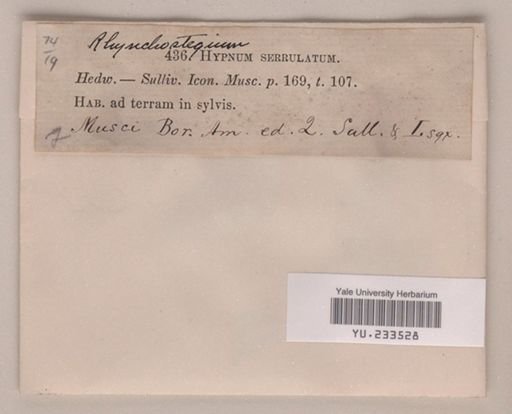 74
19
Rhynchostegium
436. Hypnum serrulatum.
Hedw. — Sulliv. Icon. Musc. p. 169, t. 107.
Hab. ad terram in sylvis.
Musci Bor. Am. ed. 2. Sull. & Lsqx.
Yale University Herbarium
YU.233528